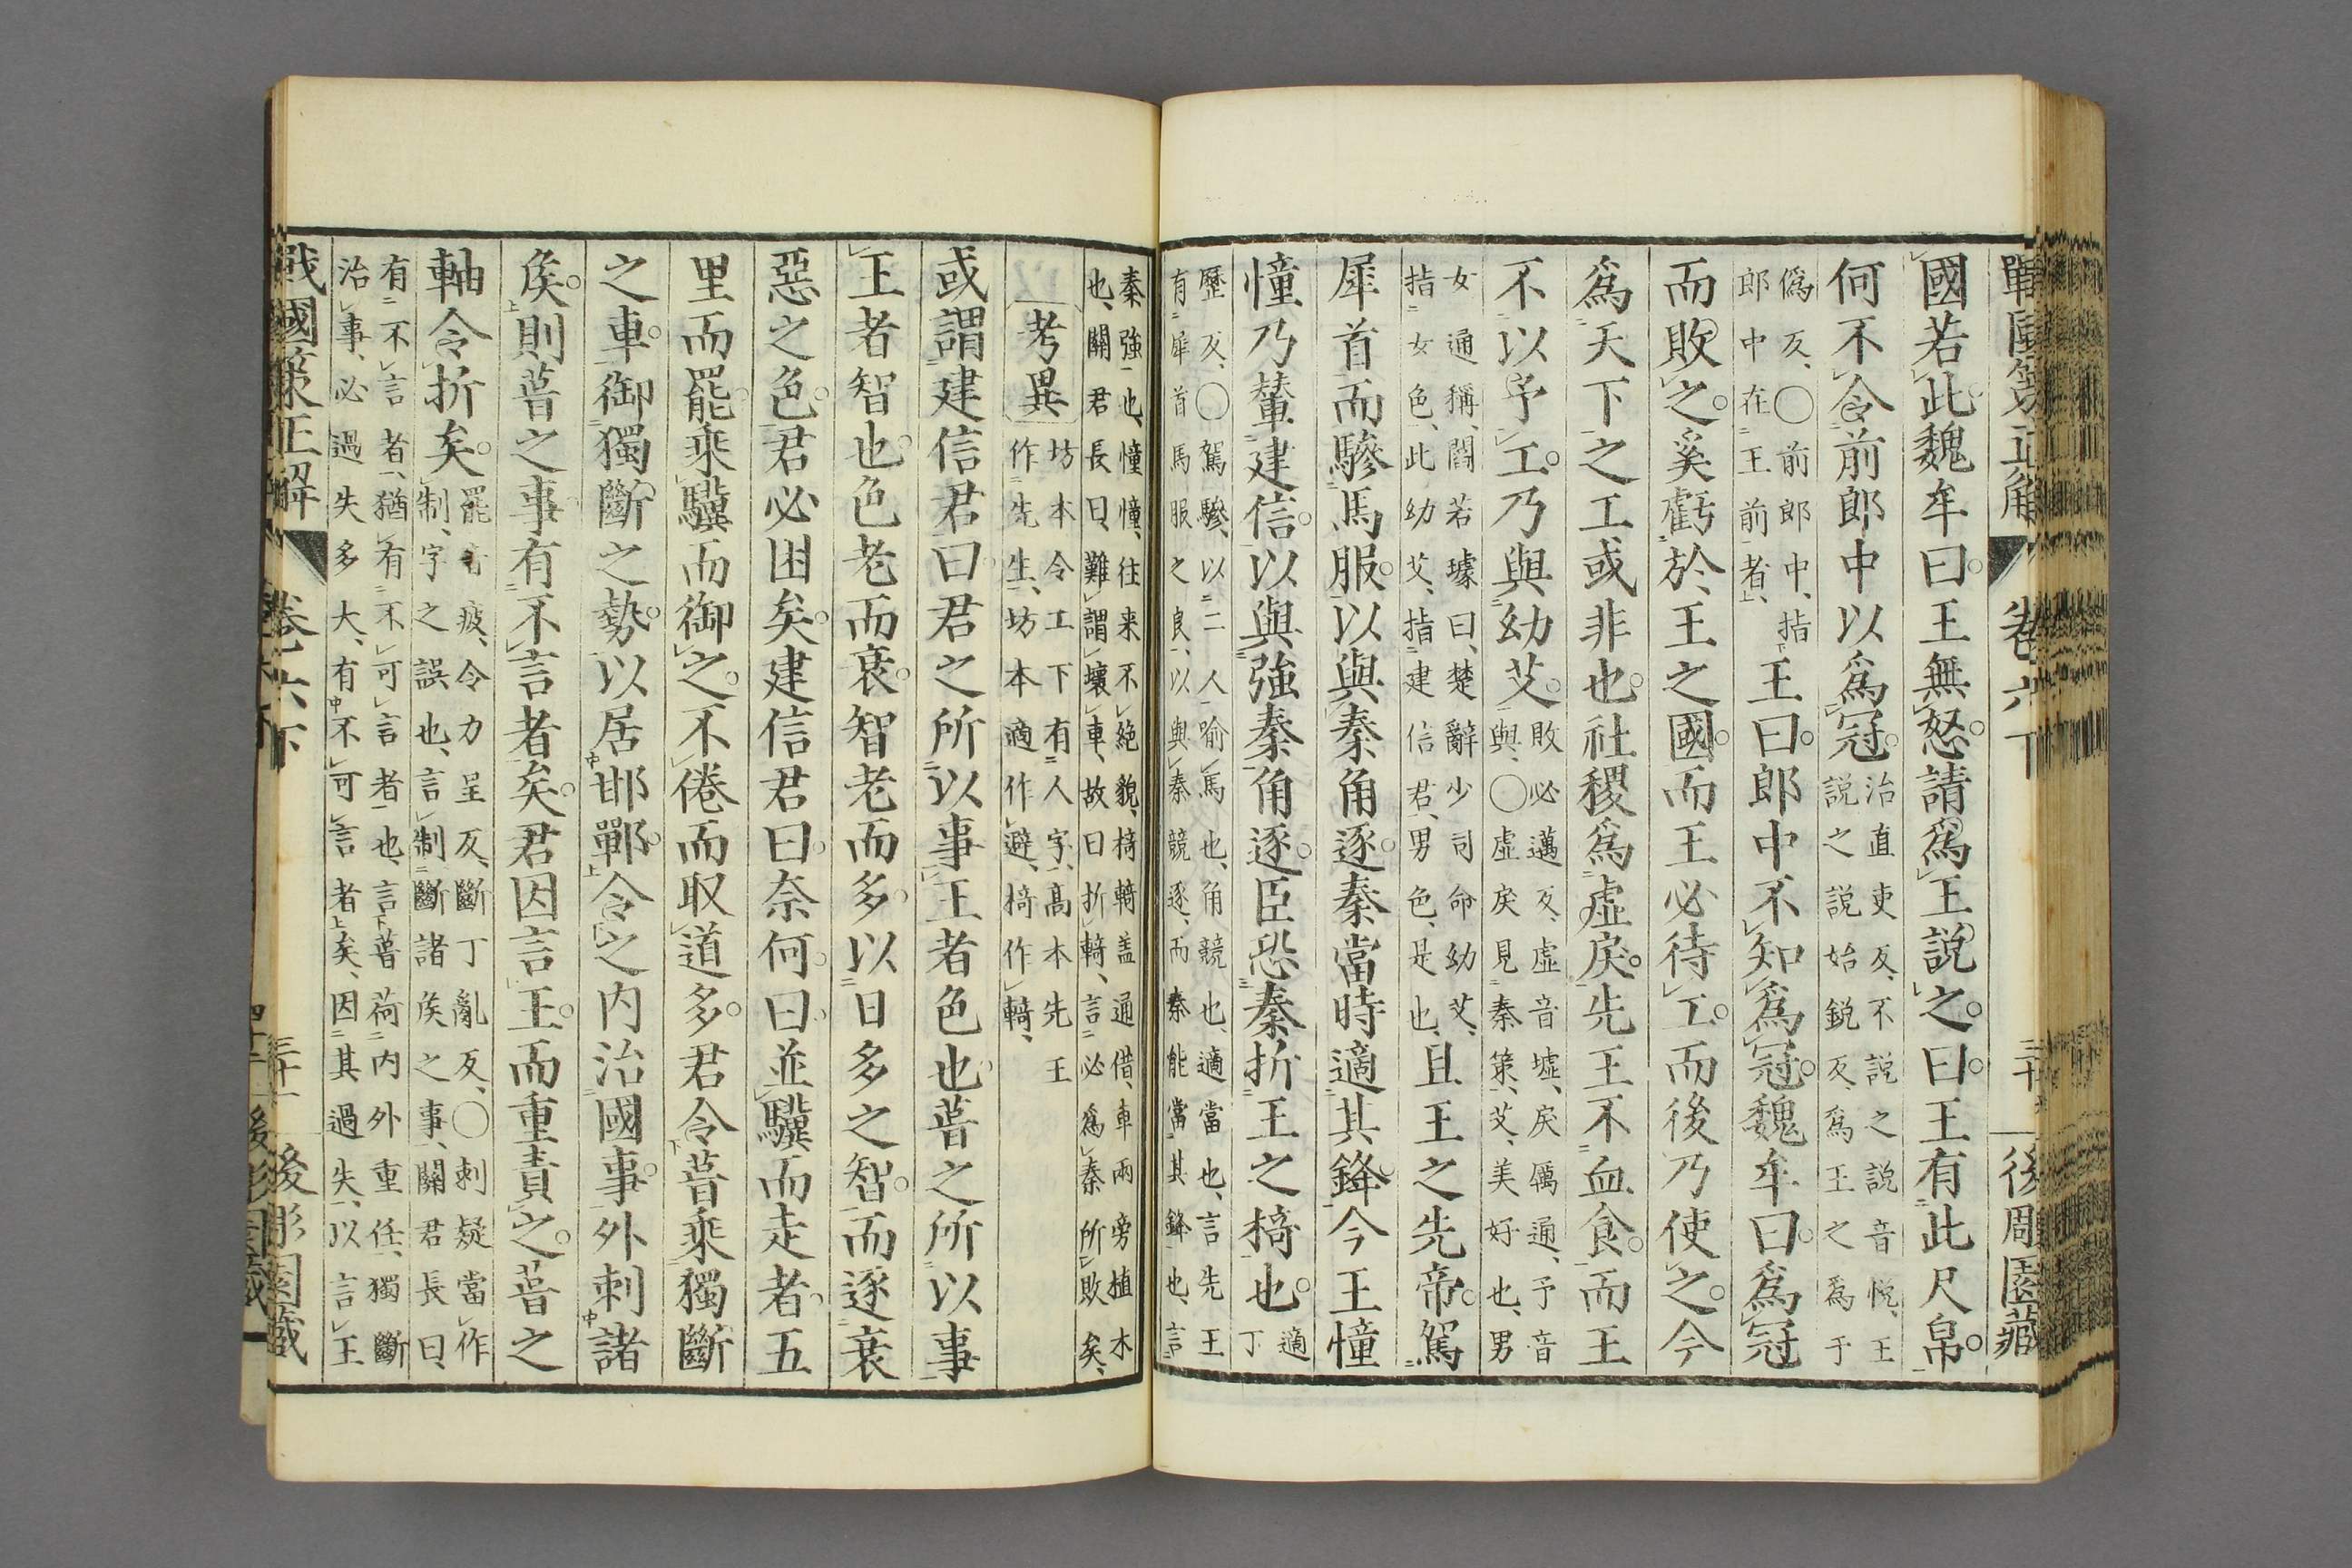 國若此魏牟曰王無怒請爲王說之曰王有此尺帛
何不令前郎中以爲冠治直吏反不說之說音悅王
說之說始銳反爲王之爲于
僞反〇前郎中指
郎中在王前者王曰郎中不知爲冠魏牟曰爲冠
而敗之奚虧於王之國而王必待工而後乃使之今
爲天下之工或非也社稷爲虛戾先王不血食而王
不以予工乃與幼艾敗必邁反虛音墟戾厲通予音
與〇虛戾見秦策艾美好也男
女通稱閻若璩曰楚辭少司命幼艾
指女色此幼艾指建信君男色是也且王之先帝駕
犀首而驂馬服以與秦角逐秦當時適其鋒今王憧
憧乃輦建信以與強秦角逐臣恐秦折王之椅也適
丁
歷反〇駕驂以二人喻馬也角競也適當也言先王
有犀首馬服之良以與秦競逐而秦能當其鋒也言
秦強也憧憧往来不絶貌椅輢盖通借車兩旁植木
也關君長曰難謂壞車故曰折輢言必爲秦所敗矣
考異坊本令工下有人字高本先王
作先生坊本適作避椅作輢
或謂建信君曰君之所以事王者色也葺之所以事
王者智也色老而衰智老而多以日多之智而逐衰
惡之色君必困矣建信君曰奈何曰並驥而走者五
里而罷乘驥而御之不倦而取道多君令葺乘獨斷
之車御獨斷之勢以居邯鄲令之内治國事外刺諸
矦則葺之事有不言者矣君因言王而重責之葺之
軸令折矣罷音疲令力呈反斷丁亂反〇刺疑當作
制字之誤也言制斷諸矦之事關君長曰
有不言者猶有不可言者也言葺荷内外重任獨斷
治事必過失多大有不可言者矣因其過失以言王
戰國策正解 卷六下 後彫園藏